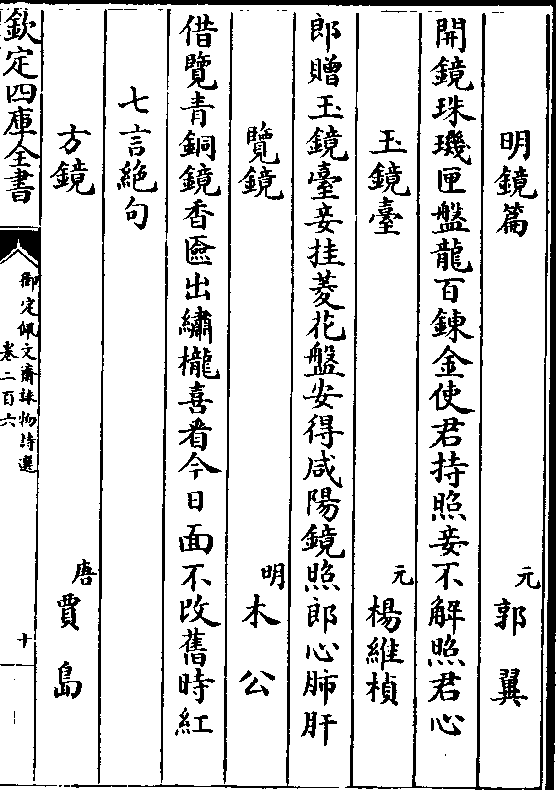 明鏡篇　元　郭翼
開鏡珠璣匣盤龍百鍊金使君持照妾不解照君心
玉鏡臺　元　楊維楨
郎贈玉鏡臺妾挂菱花盤安得咸陽鏡照郎心肺肝
覽鏡　明　木公
借覽青銅鏡香匳出繡櫳喜看今日面不改舊時紅
七言絶句
方鏡　唐　賈島
欽定四庫全書
御定佩文齋詠物詩選
卷二百六
十